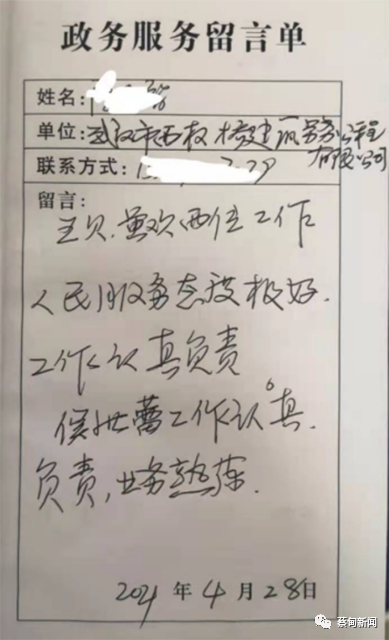 政务服务留言单
姓名:
单位: 武汉市西牧 桥建筑劳务工程
有限公司
联系方式: 1 29
留言:
王贝、黄欢两位工作
人民服务态度极好.
工作认真负责
侯世蕾工作认真.
负责,业务熟练.
2021 年 4 月 28日
蔡甸新闻